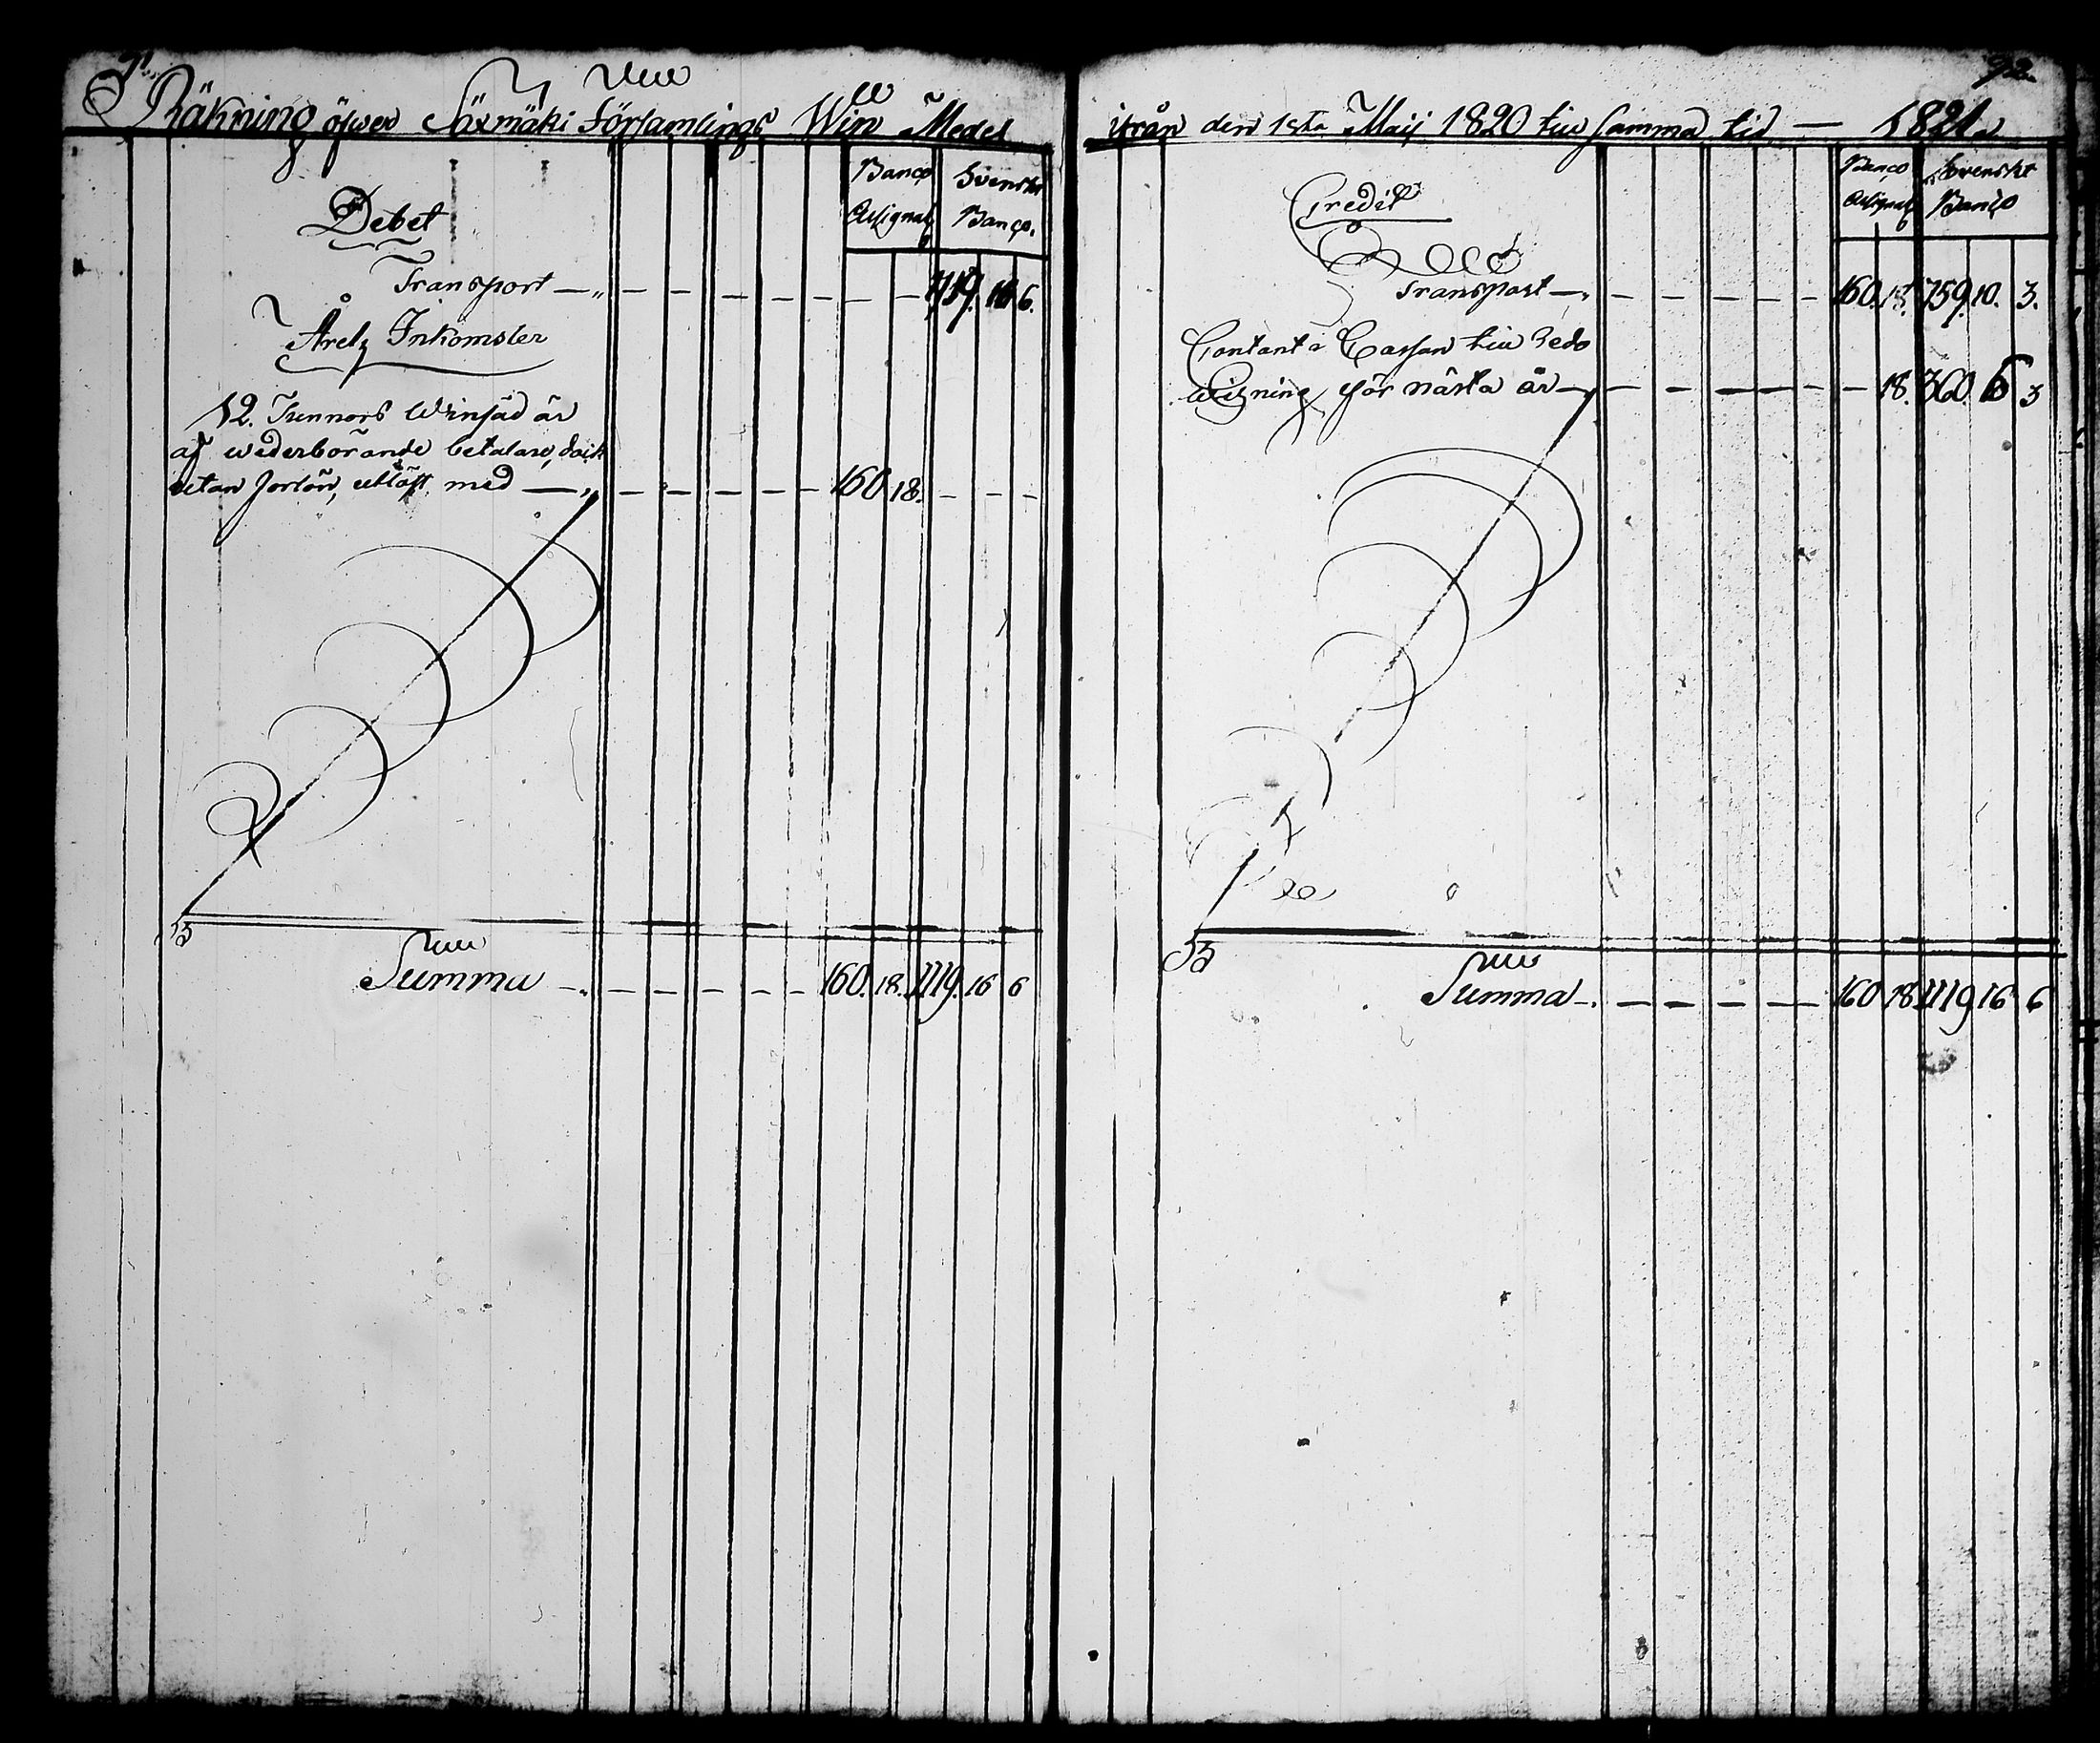 91.
Räkning öfwer Säxmäki Församlings Win Medel
Banco Assignat. Svenskt Banço.
Debet
Transport — 1119. 16 6.
Årets Inkomster
12. Tunnors Winsäd är
af wederbörande betalare, dock
utan forlön, utlöst med — 160. 18.
Summa — 160. 18. 1119. 16 6
92.
ifrån den 1sta Maij 1820 till samma tid — 1821.
Banço Assignat. Svenskt Banço
Credit
Transport — 160. 18. 759. 10. 3.
Contant i Cassan till Redo
wisning för nästa år — 18. 360. 6 3
Summa — 160 18. 1119 16 6